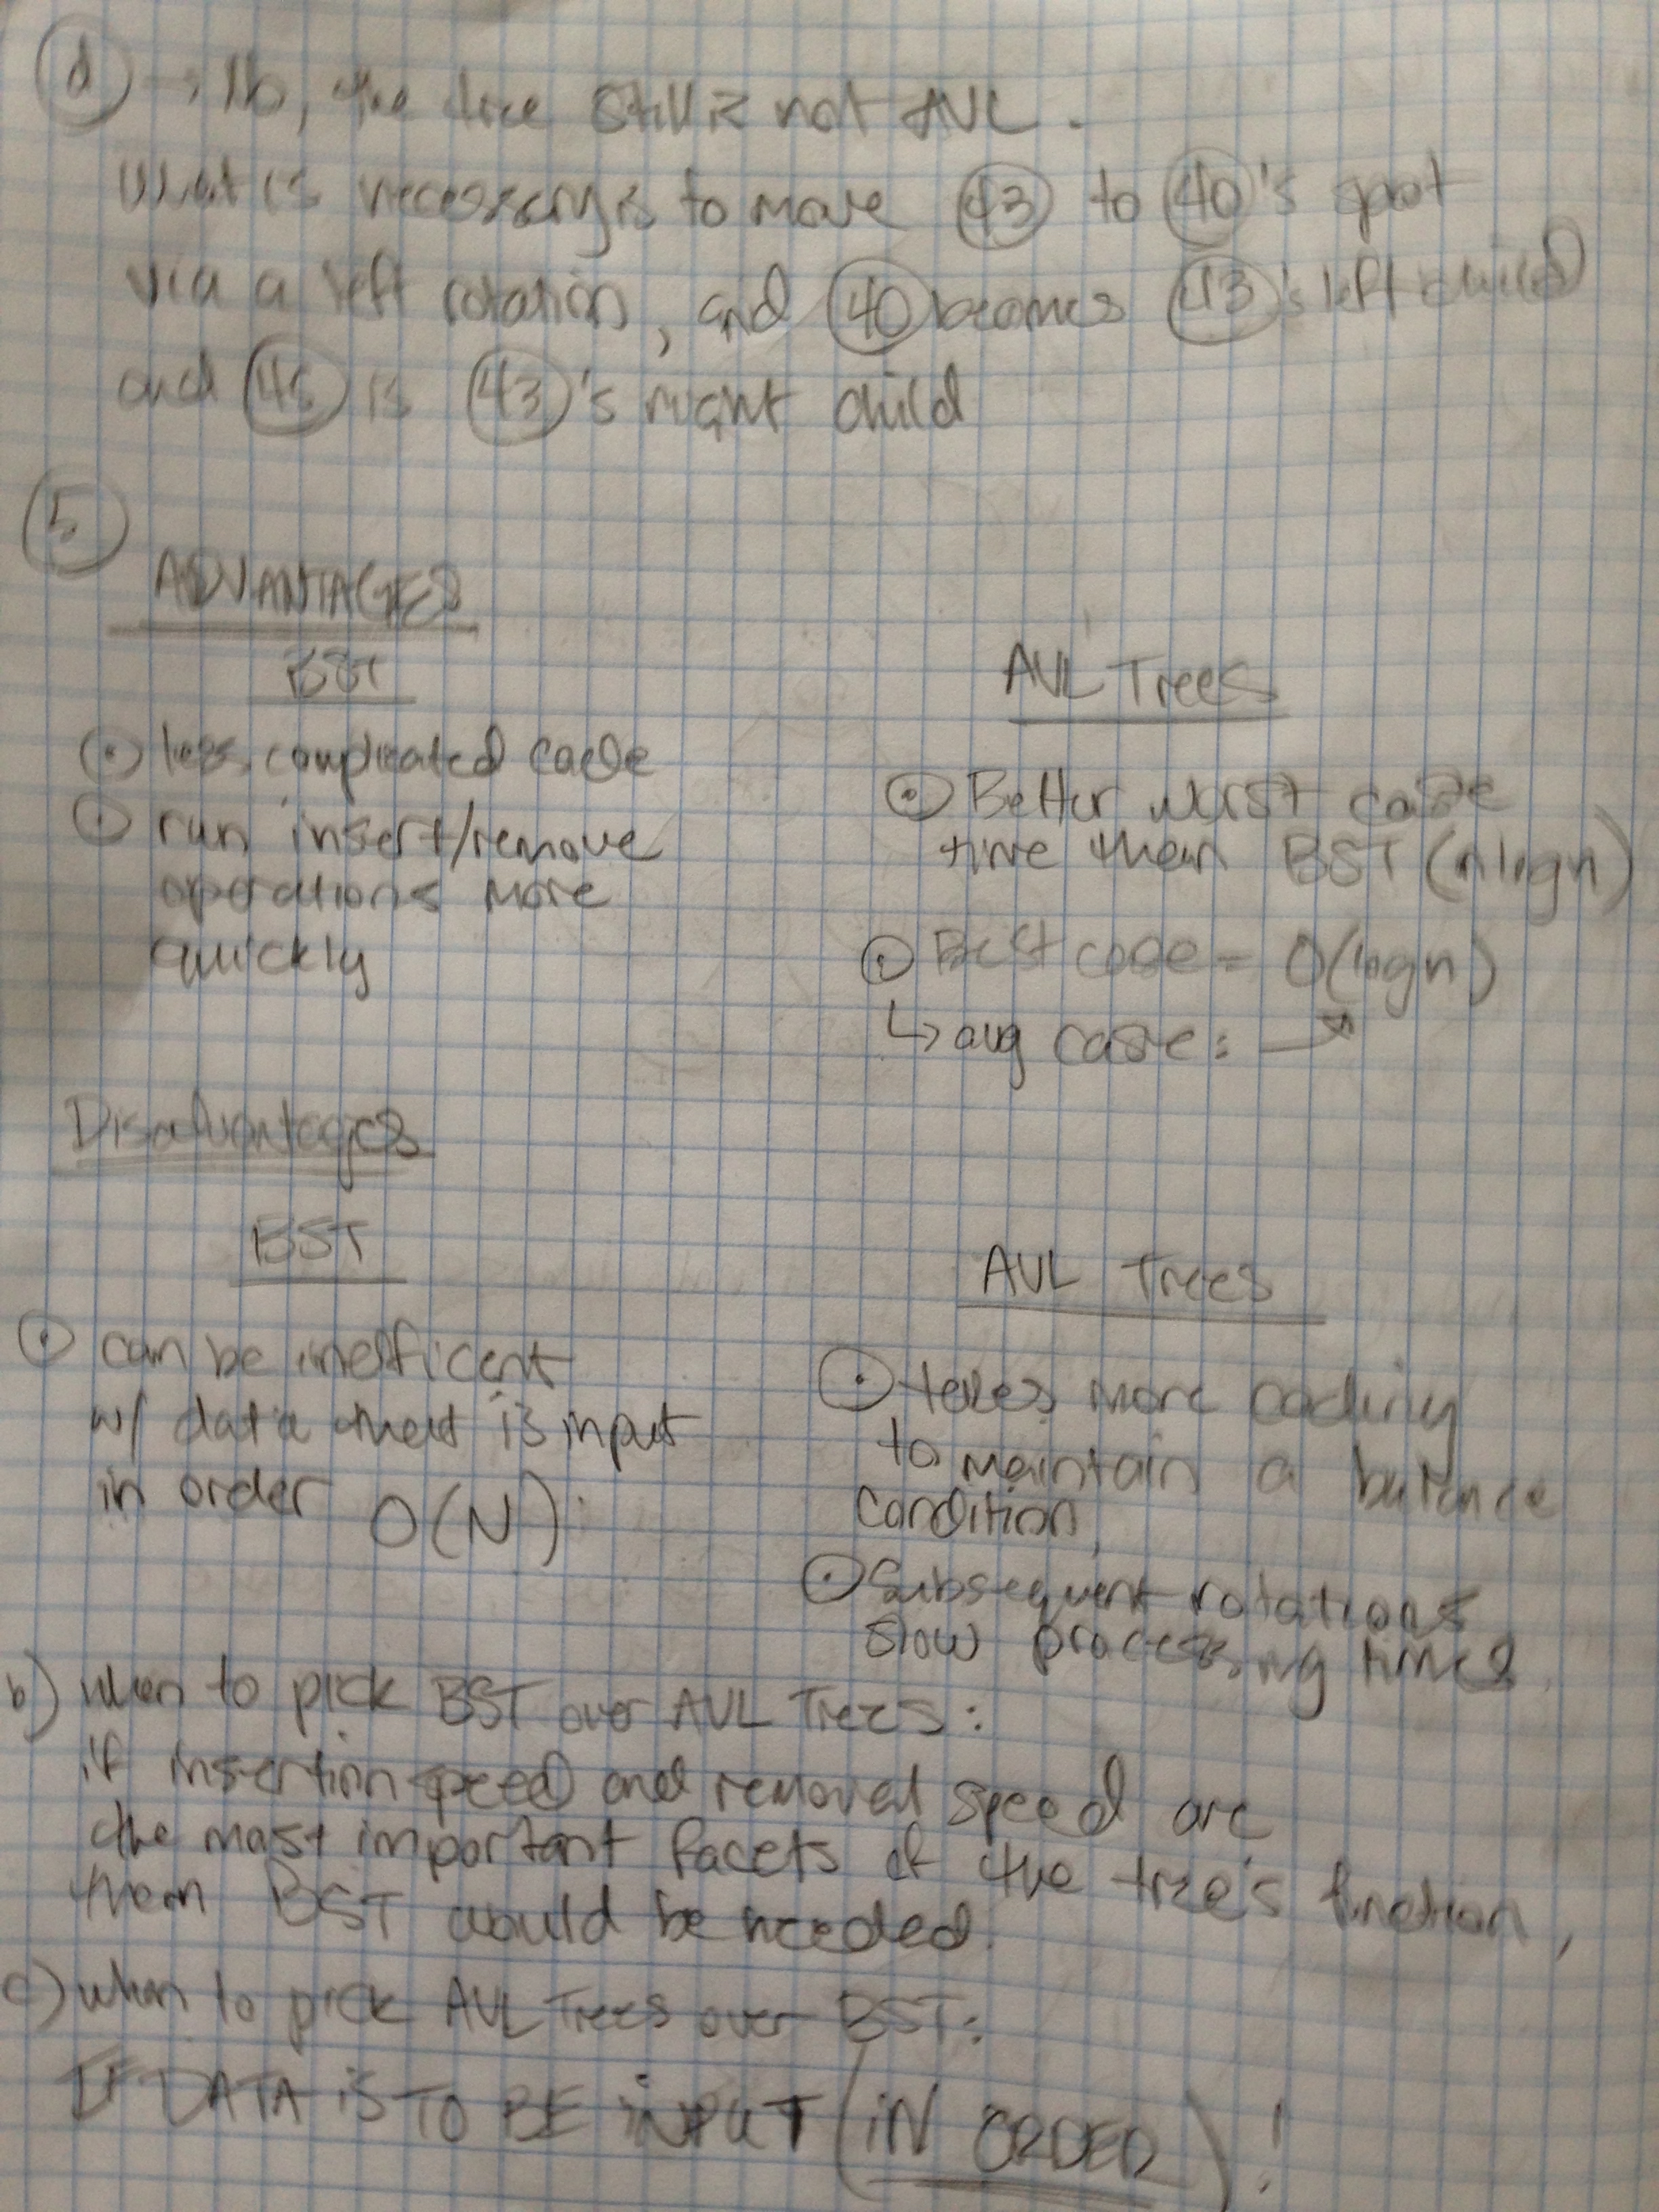 d → No, the tree still is not AVL.
What is necessary is to move 43 to 40's spot
via a left rotation, and 40 becomes 43's left child
and 45 is 43's right child
5
ADVANTAGES
BST
AVL Trees
⊙ less complicated code
⊙ run insert/remove
operations more
quickly
⊙ Better worst case
time than BST (nlogn)
⊙ Best case = O(logn)
↳ avg case: ↗
Disadvantages
BST
AVL Trees
⊙ can be inefficent
w/ data that is input
in order O(N)
⊙ takes more coding
to maintain a balance
condition
⊙ Subsequent rotations
slow processing times.
b) when to pick BST over AVL Trees:
if insertion speed and removal speed are
the most important facets of the tree's function,
then BST would be needed.
c) when to pick AVL Trees over BST:
IF DATA iS TO BE iNPUT (iN ORDER)!